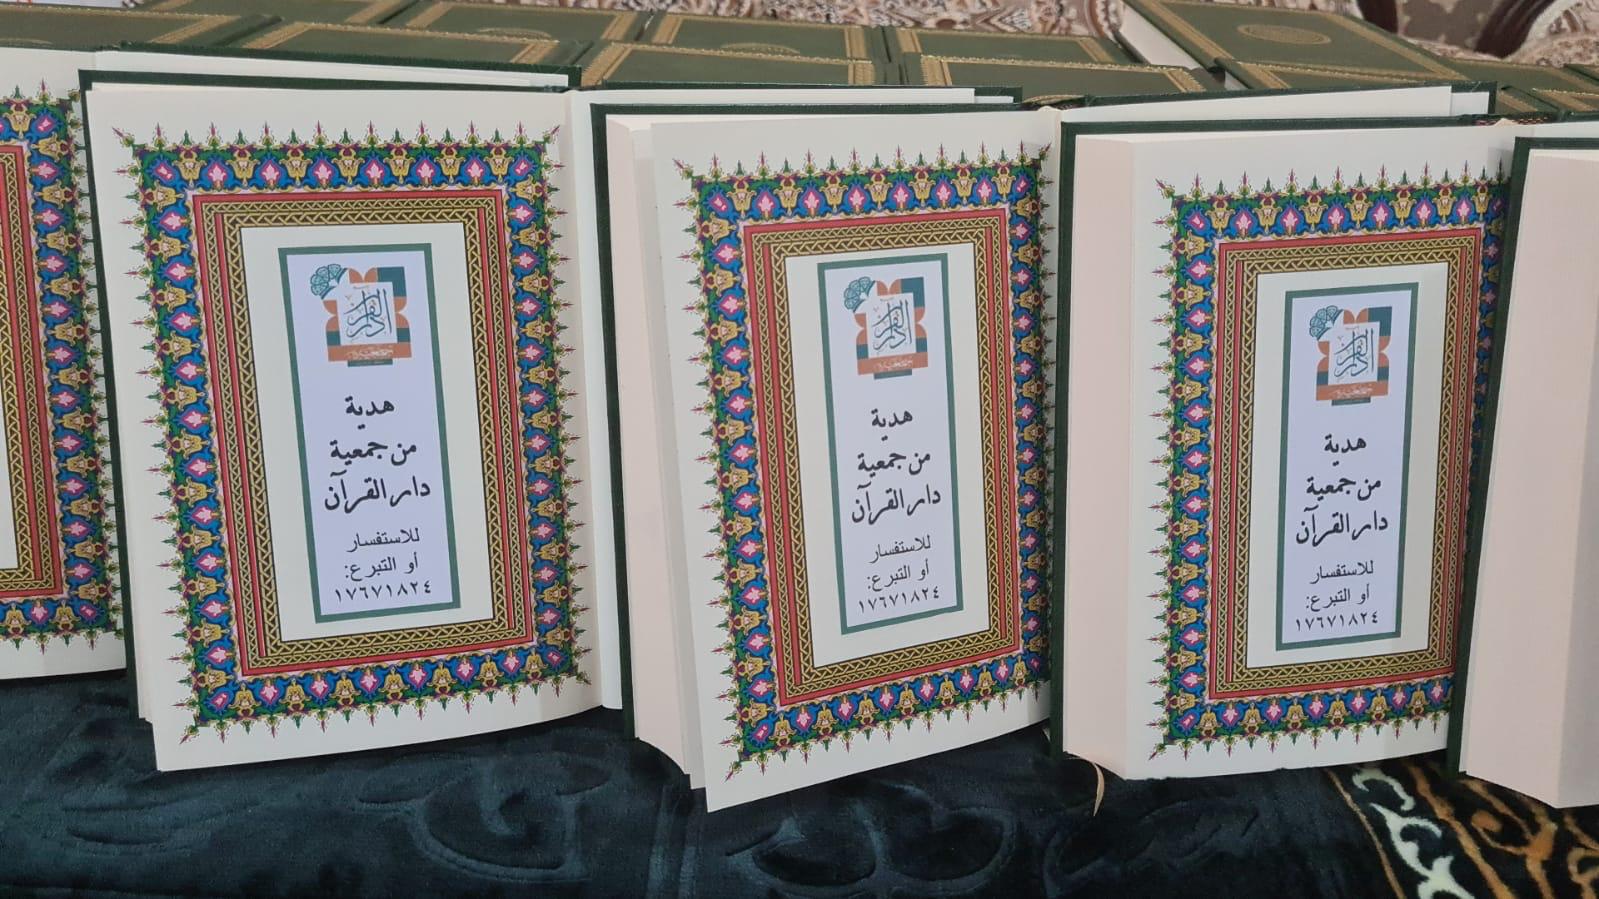 دار القرآن
هدية
من جمعية
دار القرآن
للاستفسار
أو التبرع:
١٧٦٧١٨٢٤
دار القرآن
هدية
من جمعية
دار القرآن
للاستفسار
أو التبرع:
١٧٦٧١٨٢٤
دار القرآن
هدية
من جمعية
دار القرآن
للاستفسار
أو التبرع:
١٧٦٧١٨٢٤